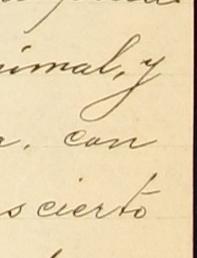 nimal, y
a, con
s cierto